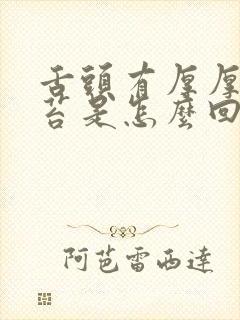 舌頭有厚厚
苔是怎麼回
阿芭雷西達